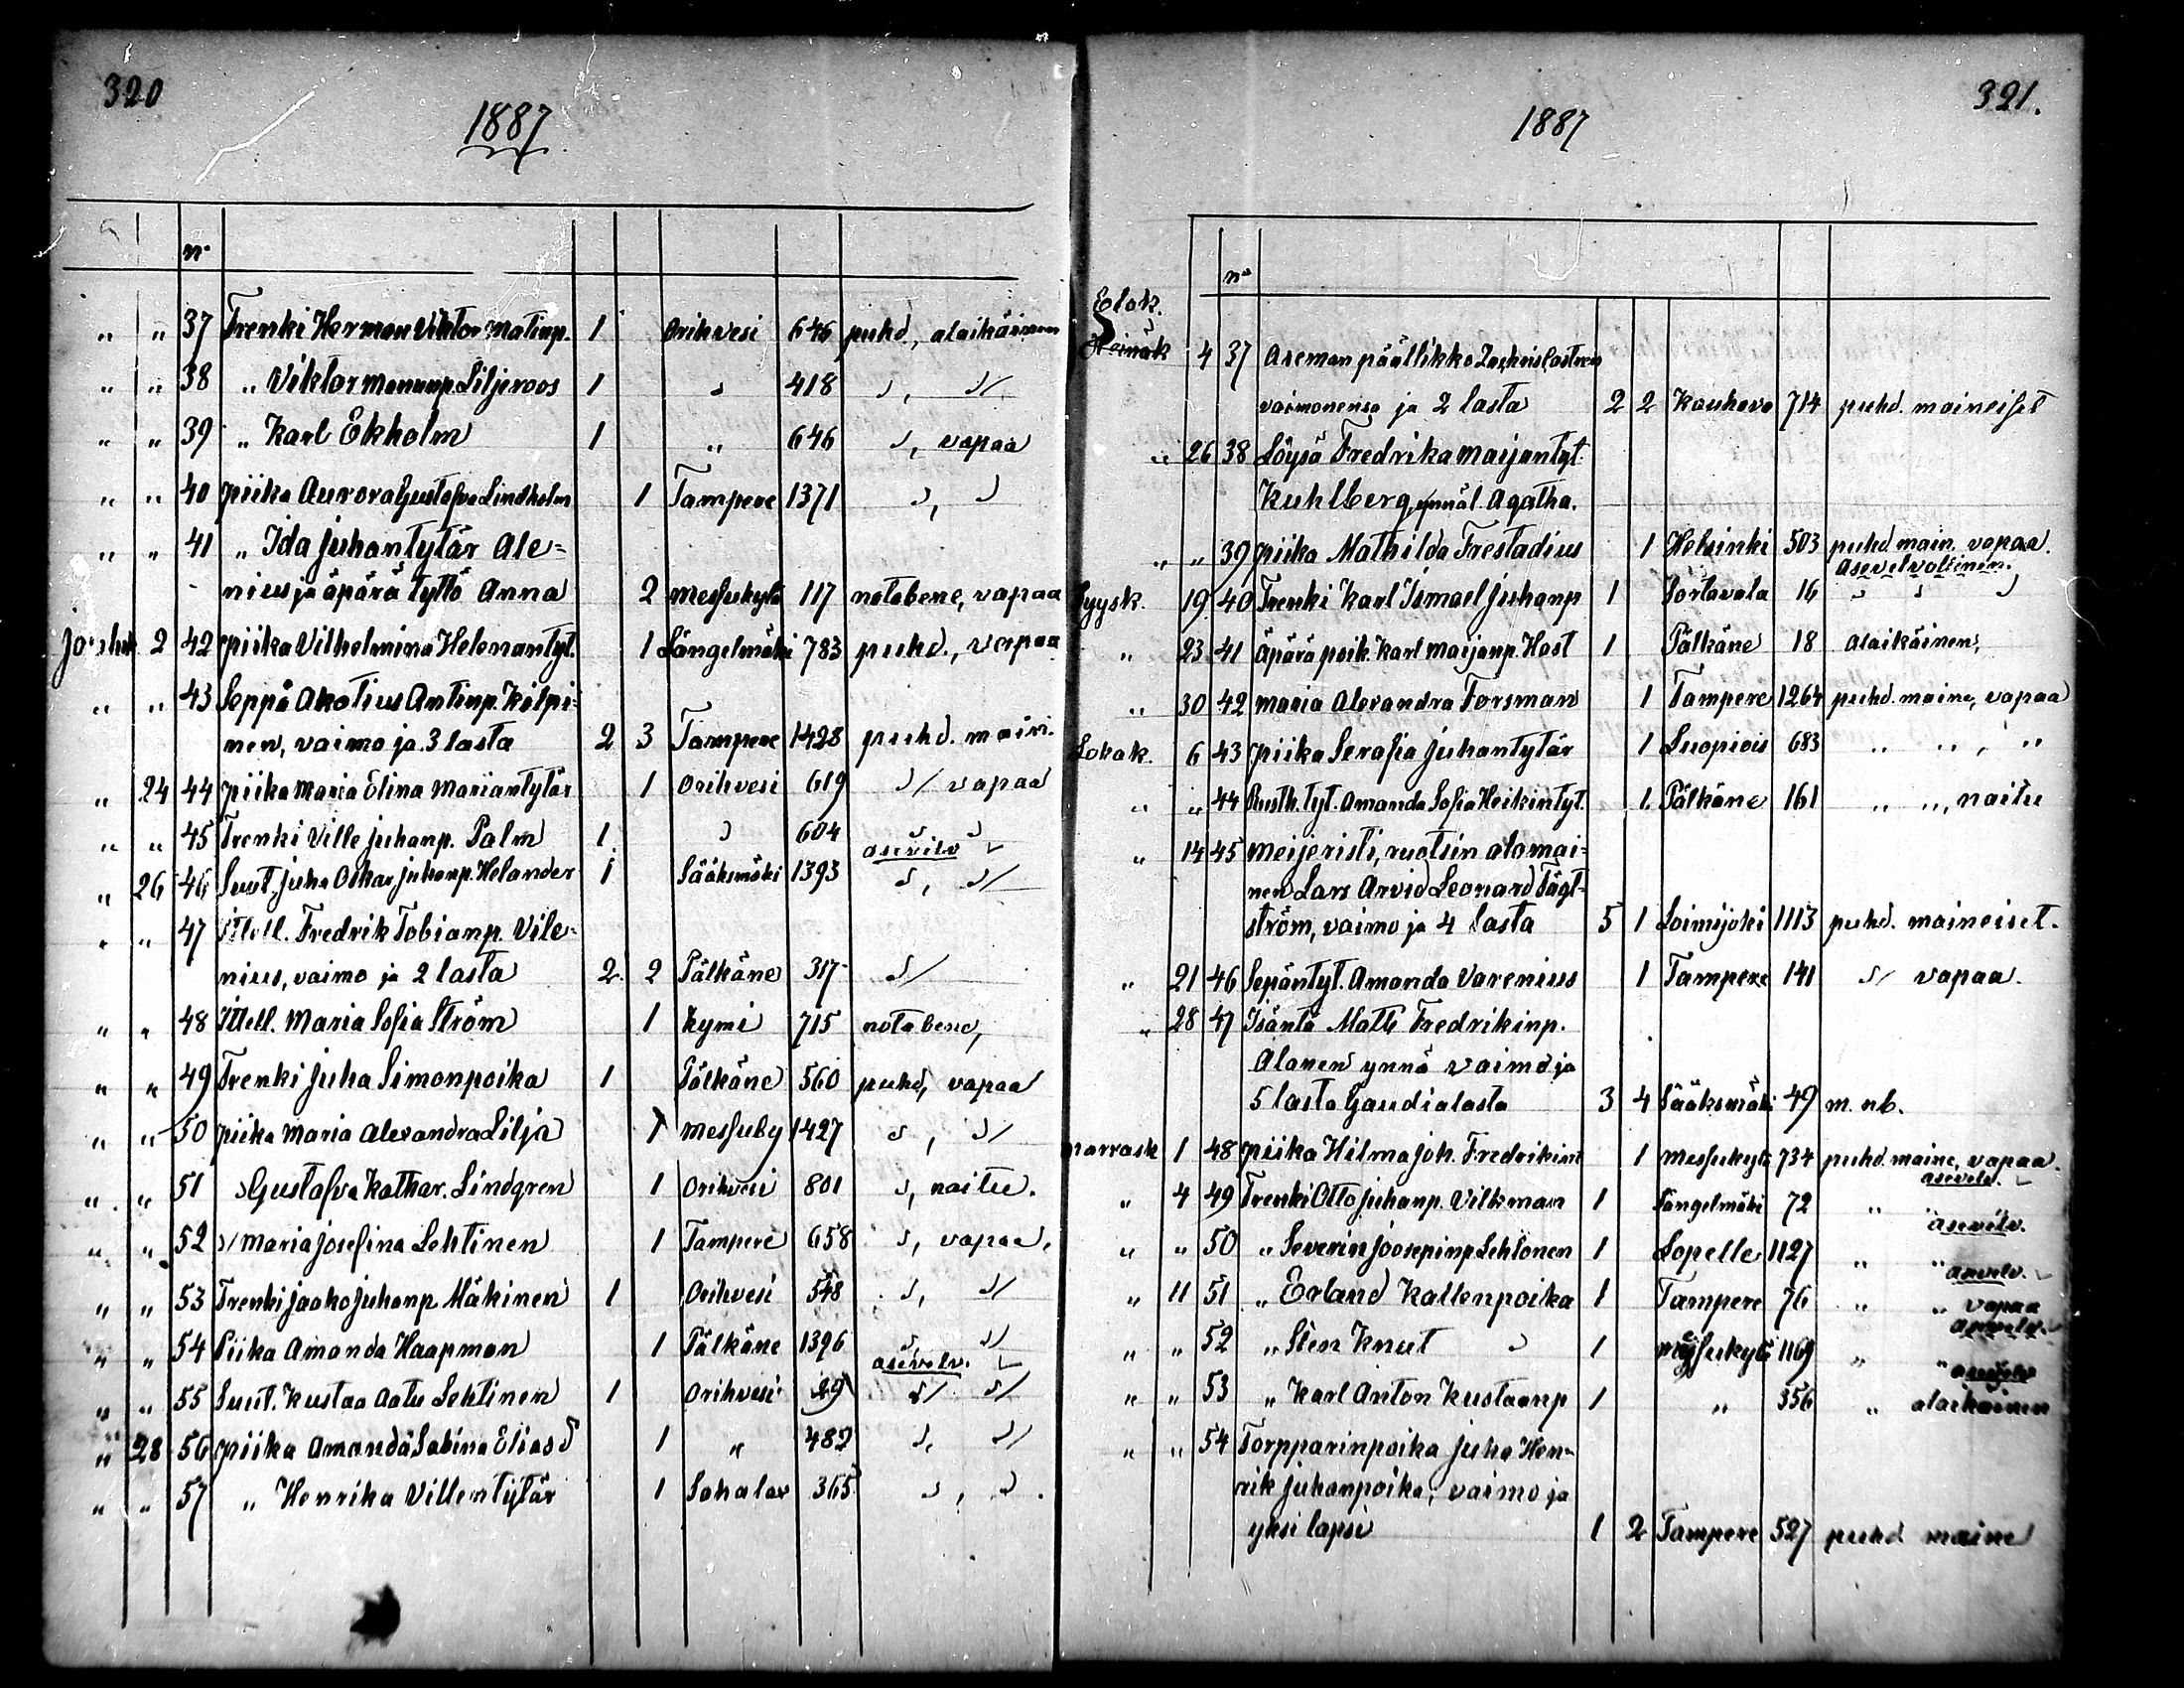 320
1887
nº
" " 37 Trenki Herman Viktor Matinp. 1 Orihvesi 646 puhd., alaikäinen
" " 38 " Viktor Manunp. Liljeroos 1 " 418 ", "
" " 39 " Karl Ekholm 1 " 646 ", vapaa
" " 40 piika Aurora Gustafva Lindholm 1 Tampere 1371 ", "
" " 41 " Ida Juhantytär Ale=
nius ja äpärä tyttö Anna 2 Messukylä 117 notabene, vapaa
Jouluk. 2 42 piika Vilhelmina Helenantyt. 1 Längelmäki 783 puhd., vapaa
" " 43 Seppä Akatius Antinp. Kilpi=
nen, vaimo ja 3 lasta 2 3 Tampere 1428 puhd. main.
" 24 44 piika Maria Elina Mariantytär 1 Orihvesi 619 " vapaa
" " 45 Trenki Ville Juhanp. Palm 1 " 604 " "
asevelv
" 26 46 Suut. Juha Oskar Juhanp. Helander 1 Sääksmäki 1393 ", "
" " 47 Itell. Fredrik Tobianp. Vile=
nius, vaimo ja 2 lasta 2 2 Pälkäne 317 "
" " 48 Itell. Maria Sofia Ström 1 Kymi 715 notabene,
" " 49 Trenki Juha Simonpoika 1 Pälkäne 560 puhd, vapaa
" " 50 piika Maria Alexandra Lilja 1 Messuby 1427 ", "
" " 51 " Gustafva Kathar. Lindgren 1 Orihvesi 801 ", naitu.
" " 52 " Maria Josefina Lehtinen 1 Tampere 658 ", vapaa,
" " 53 Trenki Jaako Juhanp Mäkinen 1 Orihvesi 548 ", "
" " 54 Piika Amanda Haapman 1 Pälkäne 1396 " "
asevelv.
" " 55 Suut. Kustaa Aatu Lehtinen 1 Orihvesi 29 " "
" 28 56 piika Amanda Sabina Elias d 1 " 482 ", "
" " 57 " Henrika Villentytär 1 Sahalax 365 ", ".
321.
1887
nº
Elok.
Heinäk 4 37 Aseman päällikkö Castren
vaimonensa ja 2 lasta 2 2 Kauhava 714 puhd. maineiset
" 26 38 Löysä Fredrika Maijantyt.
Kuhlberg, ynnä l. Agatha.
" " 39 piika Mathilda Frestadius 1 Helsinki 503 puhd. main. vapaa.
Asevelvollinen.
Syysk. 19 40 Trenki Karl Ismael Juhanp 1 Sortavala 16 " " "
" 23 41 Äpärä poik. Karl Maijanp. Hast 1 Pälkäne 18 alaikäinen,
" 30 42 Maria Alexandra Forsman 1 Tampere 1264 puhd. maine, vapaa
Lokak. 6 43 piika Serafia Juhantytär 1 Luopiois 683 " ", "
" " 44 Rusth. tyt. Amanda Sofia Heikintyt. 1 Pälkäne 161 " ", naitu
" 14 45 Meijeristi, ruotsin alamai=
nen Lars Arvid Leonard Tägt=
ström, vaimo ja 4 lasta 5 1 Loimijoki 1113 puhd. maineiset.
" 21 46 Sepäntyt. Amanda Varenius 1 Tampere 141 " vapaa.
" 28 47 Isäntä Matti Fredrikinp.
Alanen ynnä vaimo ja
5 lasta Gaudialasta 3 4 Sääksmäki 49 m. nb.
Marrask 1 48 piika Hilma Joh. Fredrikint 1 Messukylä 734 puhd. maine, vapaa.
asevelv.
" 4 49 Trenki Otto Juhanp. Vilkman 1 Längelmäki 72 " "
asevelv.
" " 50 " Severin Joosepinp Lehtonen 1 Lopelle 1127 " "
asevelv.
" 11 51 " Erland Kallenpoika 1 Tampere 76 " " vapaa
asevelv.
" " 52 " Sten Knut " 1 Messukylä 1169 " "
asevelv
" " 53 " Karl Anton Kustaanp 1 " 356 " alaikäinen
" " 54 Torpparinpoika Juha Hen=
rik Juhanpoika, vaimo ja
yksi lapsi 1 2 Tampere 527 puhd maine